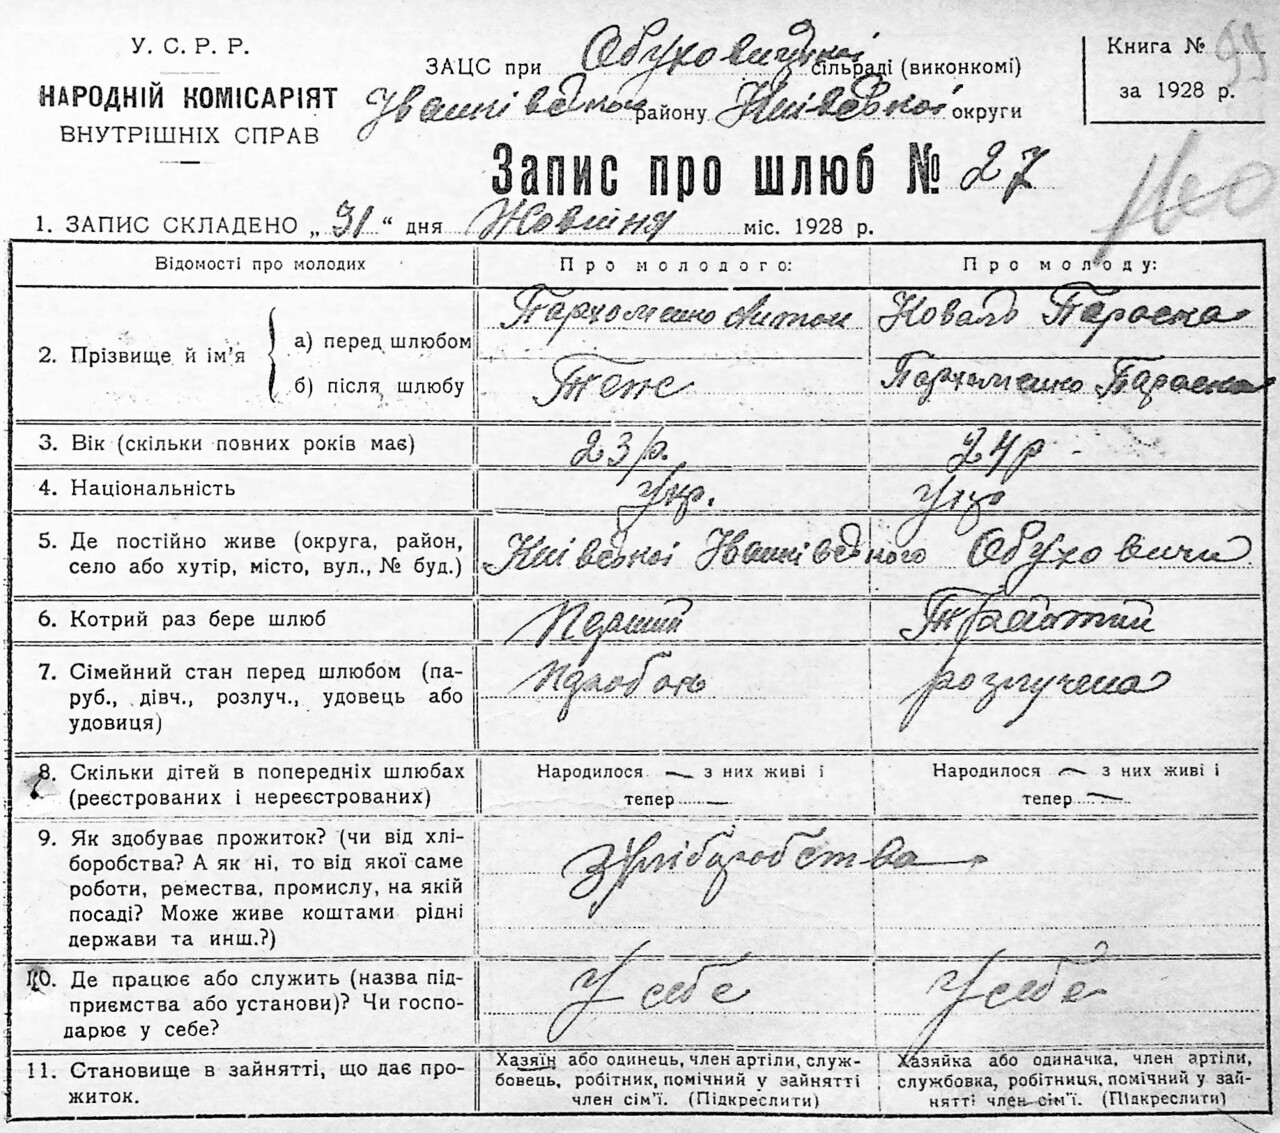 У. С. Р. Р.
НАРОДНІЙ КОМІСАРІЯТ
ВНУТРІШНІХ СПРАВ
ЗАЦС при Обуховицькій сільраді (виконкомі)
Іванківського району Київської округи
Книга № 99
за 1928 р.
Запис про шлюб № 27
160
1. ЗАПИС СКЛАДЕНО „31“ дня Жовтня міс. 1928 р.
Відомості про молодих
Про молодого:
Про молоду:
2. Прізвище й ім’я
а) перед шлюбом
Пархоменко Антон
Коваль Параска
б) після шлюбу
Теж
Пархоменко Параска
3. Вік (скільки повних років має)
23 р.
24 р
4. Національність
Укр.
Укр
5. Де постійно живе (округа, район,
село або хутір, місто, вул., № буд.)
Київської Іванківського Обуховичи
6. Котрий раз бере шлюб
Перший
7. Сімейний стан перед шлюбом (па-
руб., дівч., розлуч., удовець або
удовиця)
розлучена
8. Скільки дітей в попередніх шлюбах
(реєстрованих і нереєстрованих)
Народилося — з них живі і
тепер —
Народилося — з них живі і
тепер —
9. Як здобуває прожиток? (чи від хлі-
боробства? А як ні, то від якої саме
роботи, ремества, промислу, на якій
посаді? Може живе коштами рідні
держави та инш.?)
З хліборобства
10. Де працює або служить (назва під-
приємства або установи)? Чи госпо-
дарює у себе?
У себе
У себе
11. Становище в зайнятті, що дає про-
житок.
Хазяїн або одинець, член артіли, служ-
бовець, робітник, помічний у зайнятті
член сім’ї. (Підкреслити)
Хазяйка або одиначка, член артіли,
службовка, робітниця, помічний у зай-
нятті член сім’ї. (Підкреслити)